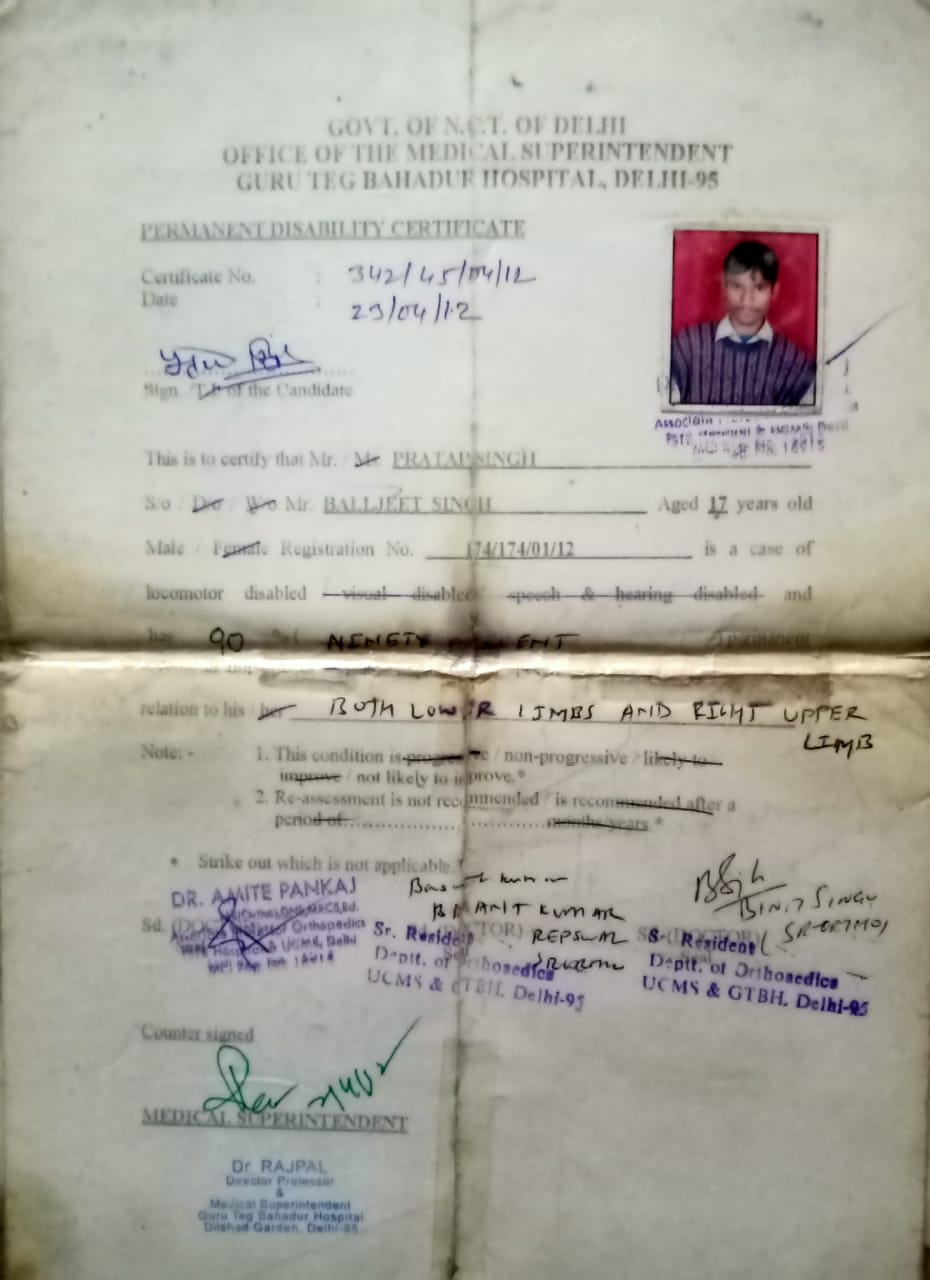 GOVT. OF N.C.T. OF DELHI
OFFICE OF THE MEDICAL SUPERINTENDENT
GURU TEG BAHADUR HOSPITAL, DELHI-95
PERMANENT DISABILITY CERTIFICATE
Certificate No. : 342/45/04/12
Date : 23/04/12
Sign. /T.I. of the Candidate
This is to certify that Mr. / Ms. PRATAP SINGH
S/o / D/o / W/o Mr. BALLJEET SINGH Aged 17 years old
Male / Female Registration No. 174/174/01/12 is a case of
locomotor disabled visual disabled speech & hearing disabled and
has 90 % ( NINETY ) permanent
relation to his / her BOTH LOWER LIMBS AND RIGHT UPPER
LIMB
Note: - 1. This condition is progressive / non-progressive / likely to
improve / not likely to improve.*
2. Re-assessment is not recommended / is recommended after a
period of months/years *
• Strike out which is not applicable.
DR. AMITE PANKAJ
Sd. (DOCTOR)
Orthopedics
& UCMS, Delhi
KUMAR
Sr. Resident
Deptt. of Orthosedics
UCMS & GTBH, Delhi-95
BINIT SINGH
Sr. Resident
Deptt. of Orthosedics
UCMS & GTBH, Delhi-95
Counter signed
MEDICAL SUPERINTENDENT
Dr RAJPAL
Director Professor
&
Medical Superintendent
Guru Teg Bahadur Hospital
Dilshad Garden, Delhi-95